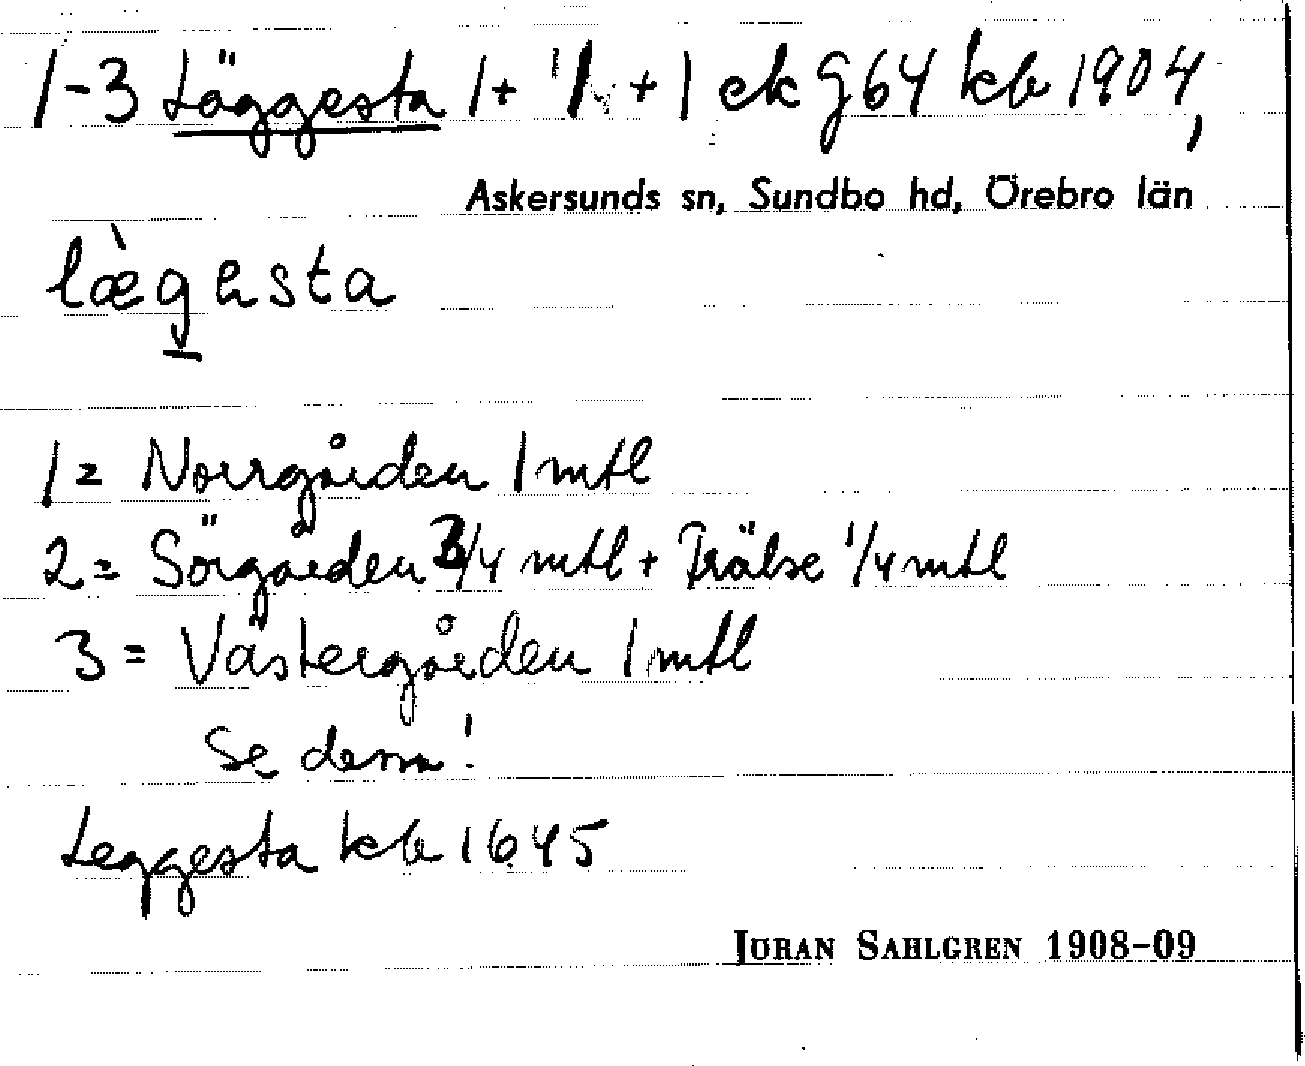 1-3 Läggesta 1+ 1 + 1 ek J64 kb 1904,
Askersunds sn, Sundbo hd, Örebro län
læ̀gesta
1= Norrgården 1 mtl
2= Sörgården 3/4 mtl + Frälse 1/4 mtl
3= Västergården 1 mtl
Se dessa!
Leggesta kb 1645
JÖRAN SAHLGREN 1908-09